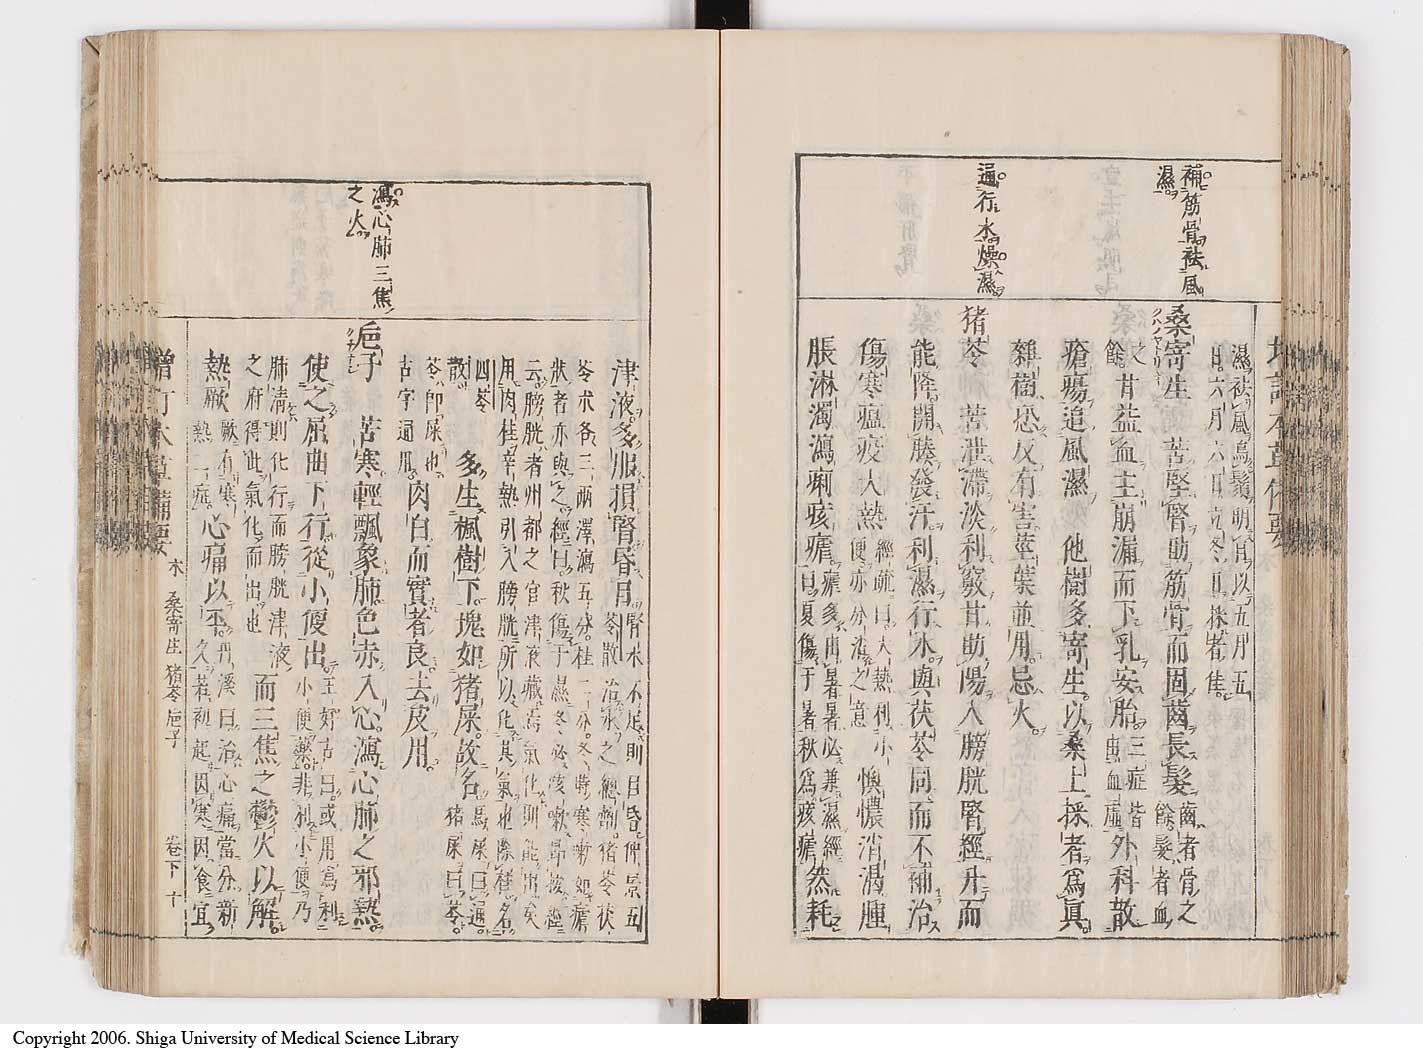 補筋骨祛風
濕
通行水燥濕
濕祛風烏鬚明目以五月五
日六月六日立冬日採者佳
桑寄生 苦堅腎助筋骨而固齒長髮齒者骨之
餘髮者血
之餘甘益血主崩漏而下乳安胎三症皆
由血虛外科散
瘡瘍追風濕他樹多寄生以桑上採者為眞
雜樹恐反有害莖葉並用忌火
猪苓 苦泄滯淡利竅甘助陽入膀胱腎經升而
能降開腠發汗利濕行水與茯苓同而不補治
傷寒瘟疫大熱經疏曰大熱利小
便亦分治之意懊憹消渴腫
脹淋濁瀉痢痎瘧瘧多由暑暑必兼濕經
曰夏傷于暑秋為痎瘧然耗
瀉心肺三焦
之火
津液多服損腎昏目腎水不足則目昏仲景五
苓散治水之總劑猪苓茯
苓术各三兩澤瀉五分桂二分冬時寒嗽如瘧
狀者亦與之經曰秋傷于濕冬必咳嗽昂按經
云膀胱者州都之官津液藏焉氣化則能出矣
用肉桂辛熱引入膀胱所以化其氣也除桂名
四苓
散多生楓樹下塊如猪屎故名馬屎曰通
猪屎曰苓
苓即屎也
古字通用肉白而實者良去皮用
巵子 苦寒輕飄象肺色赤入心瀉心肺之邪熱
使之屈曲下行從小便出王好古曰或用為利
小便藥非利小便乃
肺清則化行而膀胱津液
之府得此氣化而出也而三焦之鬱火以解
熱厥厥有寒
熱二症心痛以平丹溪曰治心痛當分新
久若初起因寒因食宜
增訂本草備要
木 桑寄生 猪苓 巵子
卷下 十